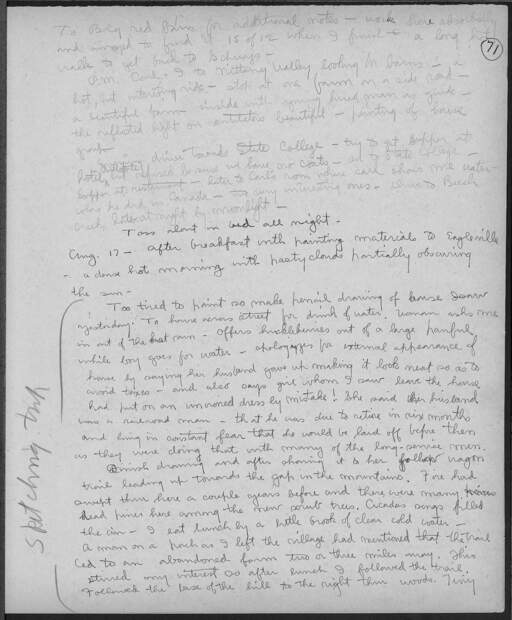 To Big red Barn for additional notes – work there absorbedly
and amazed to find it 15 of 12 when I finish – a long hot
walk to get back to Schwings –
71
P.M. Carl & I to Nittany Valley looking for barns – a
hot, but interesting ride – stop at one farm on a side road –
a beautiful barn – inside with young hired man as guide –
the reflected light on beautiful – painting of horse
drive towards State College – try to get supper at
hotel but refused because we have no coats – State College –
supper at restaurant – later to Carl's room where Carl shows me water-
colors he did in Canada – very interesting ones – then to Beech
Creek, later at night by moonlight –
Toss about in bed all night –
Aug. 17 – After breakfast with painting materials to Eagleville
– a dense hot morning with pasty clouds partially obscuring
the sun –
Too tired to paint so make pencil drawing of house I saw
yesterday. To house across street for drink of water. Woman asks me
in out of the hot sun – offers huckleberries out of a large panful,
while boy goes for water – apologizes for external appearance of
house by saying her husband gave up making it look neat so as to
avoid taxes – and also says girl whom I saw leave the house
had put on an unironed dress by mistake! She said her husband
was a railroad man – that he was due to retire in six months
and living in constant fear that he would be laid off before then
as they were doing that with many of the long-service men.
Finish drawing and after showing it to her follow wagon
trail leading up towards the gap in the mountains. Fire had
swept thru here a couple years before and there were many
dead pines here among the new scrub trees. Cicadas songs filled
the air – I eat lunch by a little brook of clear cold water –
A man on a porch as I left the village had mentioned that the trail
led to an abandoned farm two or three miles away. This
stirred my interest so after lunch I followed the trail.
Followed the base of the hill to the right thru woods. Tiny
Sketching trip